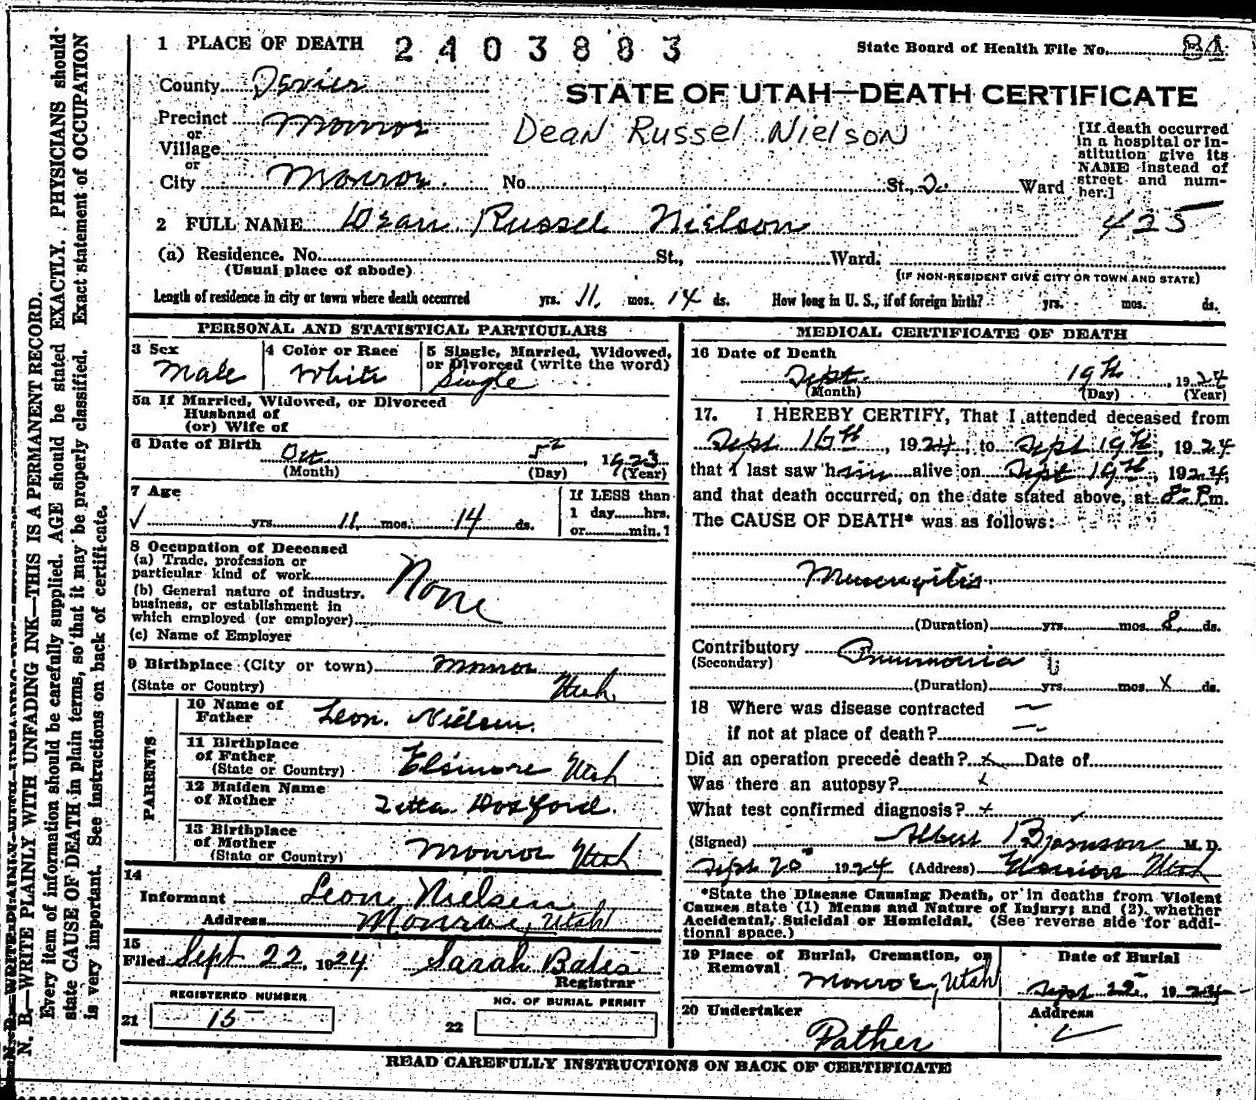 1 PLACE OF DEATH 2403883 State Board of Health File No. 84
County Sevier
STATE OF UTAH—DEATH CERTIFICATE
Precinct Monroe
or
Village
or
City Monroe No. St., Ward
Dean Russel Nielson
[If death occurred in a hospital or institution give its NAME instead of street and number.]
2 FULL NAME Dean Russel Nielson 425
(a) Residence. No. St., Ward.
(Usual place of abode) (IF NON-RESIDENT GIVE CITY OR TOWN AND STATE)
Length of residence in city or town where death occurred yrs. 11 mos. 14 ds. How long in U. S., if of foreign birth? yrs. mos. ds.
PERSONAL AND STATISTICAL PARTICULARS
3 Sex Male
4 Color or Race White
5 Single, Married, Widowed, or Divorced (write the word) Single
5a If Married, Widowed, or Divorced
Husband of
(or) Wife of
6 Date of Birth Oct 5 1923
(Month) (Day) (Year)
7 Age
yrs. 11 mos. 14 ds.
If LESS than
1 day hrs.
or min.?
8 Occupation of Deceased
(a) Trade, profession or
particular kind of work None
(b) General nature of industry,
business, or establishment in
which employed (or employer)
(c) Name of Employer
9 Birthplace (City or town) Monroe
(State or Country) Utah
PARENTS
10 Name of Father Leon Nielsen
11 Birthplace of Father (State or Country) Elsinore Utah
12 Maiden Name of Mother
13 Birthplace of Mother (State or Country) Monroe Utah
14 Informant Leon Nielsen
Address Monroe, Utah
15 Filed Sept 22, 1924 Sarah Bates
Registrar
REGISTERED NUMBER
21 15
NO. OF BURIAL PERMIT
22
MEDICAL CERTIFICATE OF DEATH
16 Date of Death
Sept. 19th, 1924
(Month) (Day) (Year)
17. I HEREBY CERTIFY, That I attended deceased from
Sept 16th, 1924, to Sept 19th, 1924
that I last saw him alive on Sept 19th, 1924,
and that death occurred, on the date stated above, at 8 P.m.
The CAUSE OF DEATH* was as follows:
Menengitis
(Duration) yrs. mos. 8 ds.
Contributory Pneumonia
(Secondary)
(Duration) yrs. mos. x ds.
18 Where was disease contracted —
if not at place of death? —
Did an operation precede death? x Date of
Was there an autopsy? x
What test confirmed diagnosis? x
(Signed) Albert M. D.
Sept 20 1924 (Address) Utah
*State the Disease Causing Death, or in deaths from Violent
Causes state (1) Means and Nature of Injury; and (2) whether
Accidental, Suicidal or Homicidal. (See reverse side for addi-
tional space.)
19 Place of Burial, Cremation, or Removal Monroe, Utah
Date of Burial
Sept 22, 1924
20 Undertaker
Father
Address
READ CAREFULLY INSTRUCTIONS ON BACK OF CERTIFICATE
N. B.—WRITE PLAINLY WITH UNFADING INK—THIS IS A PERMANENT RECORD.
Every item of information should be carefully supplied. AGE should be stated EXACTLY. PHYSICIANS should
state CAUSE OF DEATH in plain terms, so that it may be properly classified. Exact statement of OCCUPATION
is very important. See instructions on back of certificate.